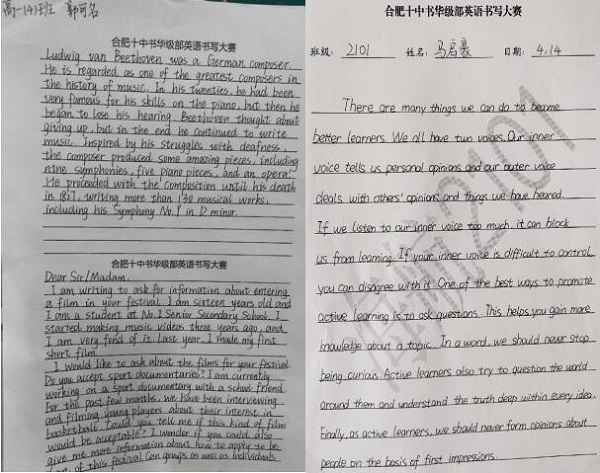 高一(4)班 郭可名
合肥十中书华级部英语书写大赛
Ludwig van Beethoven was a German composer.
He is regarded as one of the greatest composers in
the history of music. In his twenties, he had been
very famous for his skills on the piano, but then he
began to lose his hearing. Beethoven thought about
giving up, but in the end he continued to write
music. Inspired by his struggles with deafness,
the composer produced some amazing pieces, including
nine symphonies, five piano pieces, and an opera.
He proceeded with the composition until his death
in 1827, writing more than 130 musical works,
including his Symphony No.9 in D minor.
合肥十中书华级部英语书写大赛
Dear Sir/Madam,
I am writing to ask for information about entering
a film in your festival. I am sixteen years old and
I am a student at No.1 Senior Secondary School. I
started making music videos three years ago, and
I am very fond of it. Last year, I made my first
short film.
I would like to ask about the films for your festival.
Do you accept sport documentaries? I am currently
working on a sport documentary with a school friend.
For the past few months, we have been interviewing
and filming young players about their interest in
basketball. Could you tell me if this kind of film
would be acceptable? I wonder if you could also
give me more information about how to apply to be
part of this festival. Can groups as well as individuals
合肥十中书华级部英语书写大赛
班级: 2101 姓名: 马启豪 日期: 4.14
There are many things we can do to become
better learners. We all have two voices. Our inner
voice tells us personal opinions and our outer voice
deals with others' opinions and things we have heared.
If we listen to our inner voice too much, it can block
us from learning. If your inner voice is difficult to control,
you can disagree with it. One of the best ways to promote
active learning is to ask questions. This helps you gain more
knowledge about a topic. In a word, we should never stop
being curious. Active learners also try to question the world
around them and understand the truth deep within every idea.
Finally, as active learners, we should never form opinions about
people on the basis of first impressions.